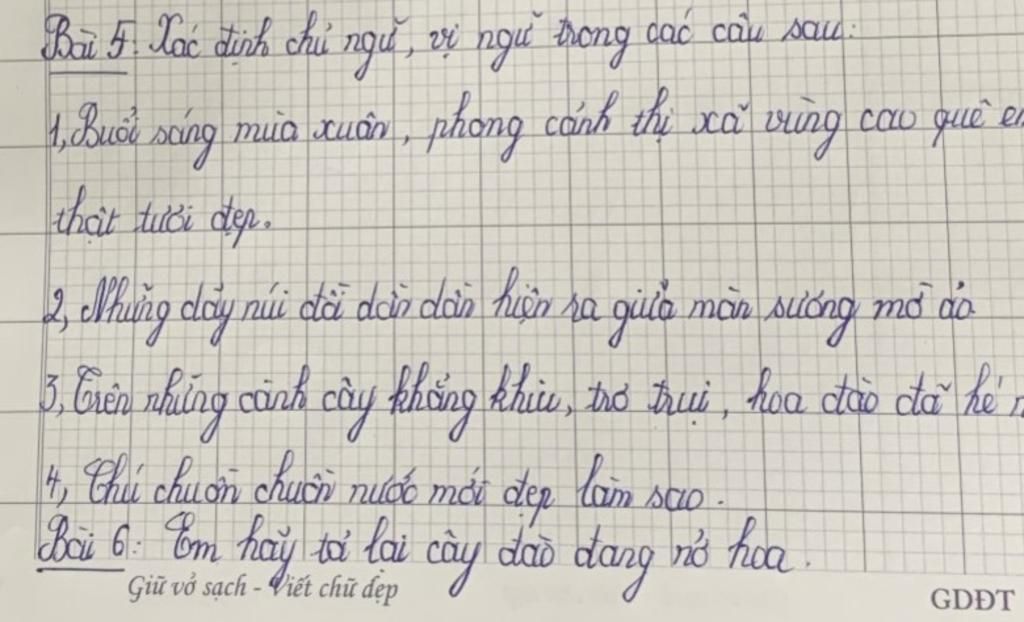 Bài 5: Xác định chủ ngữ, vị ngữ trong các câu sau:
1, Buổi sáng mùa xuân, phong cảnh thị xã vùng cao quê
thật tươi đẹp.
2, Những dãy núi đồi dần dần hiện ra giữa màn sương mờ ảo
3, Trên những cành cây khẳng khiu, trơ trụi, hoa đào đã hé
4, Chú chuồn chuồn nước mới đẹp làm sao.
Bài 6: Em hãy tả lại cây đào đang nở hoa.
Giữ vở sạch - Viết chữ đẹp
GDĐT